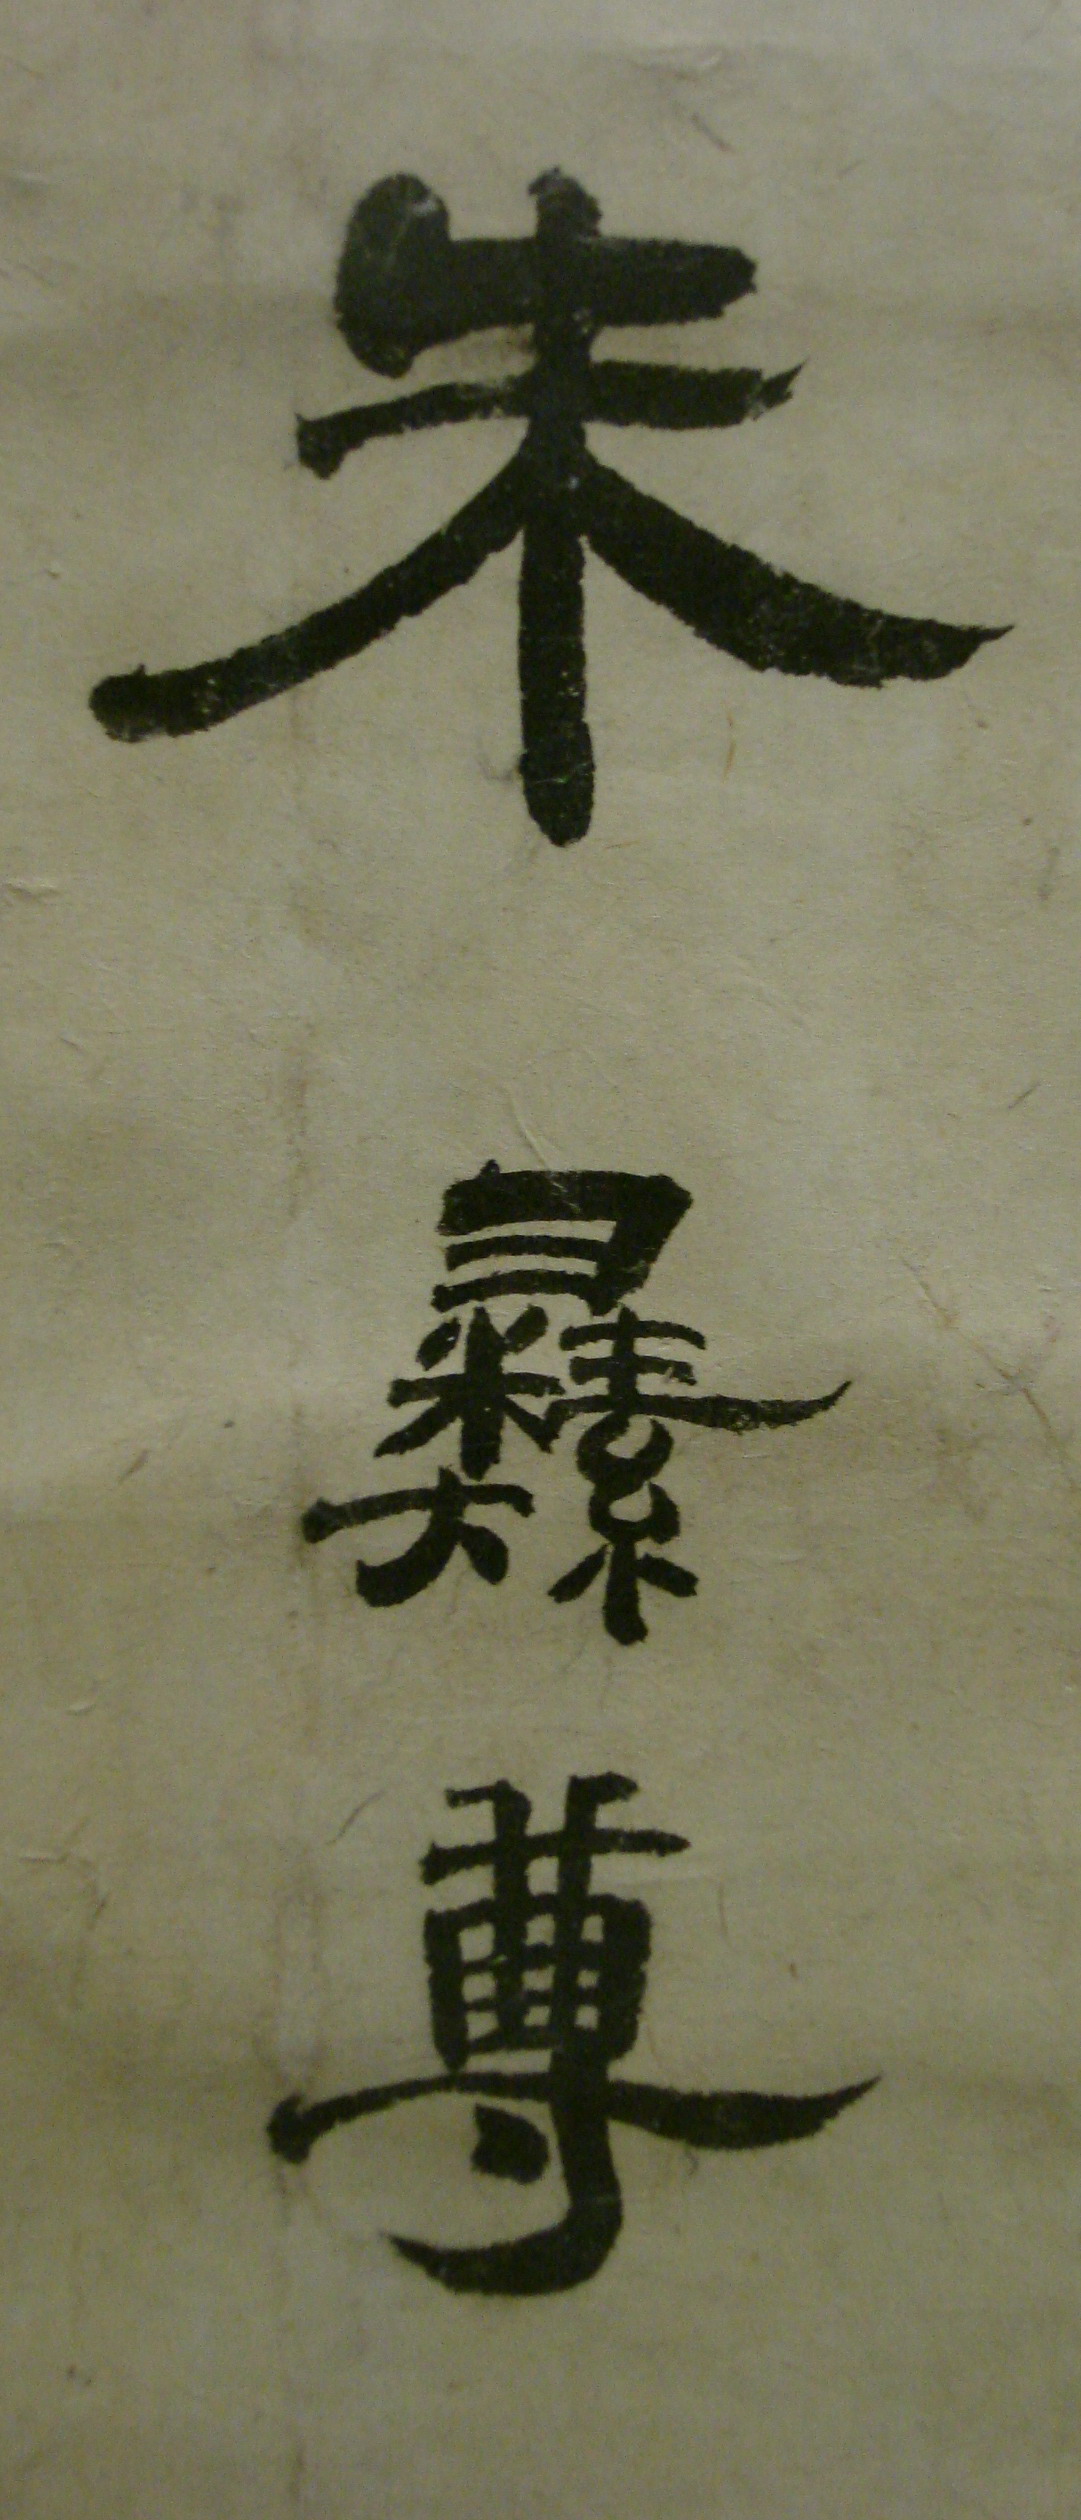 朱彝尊